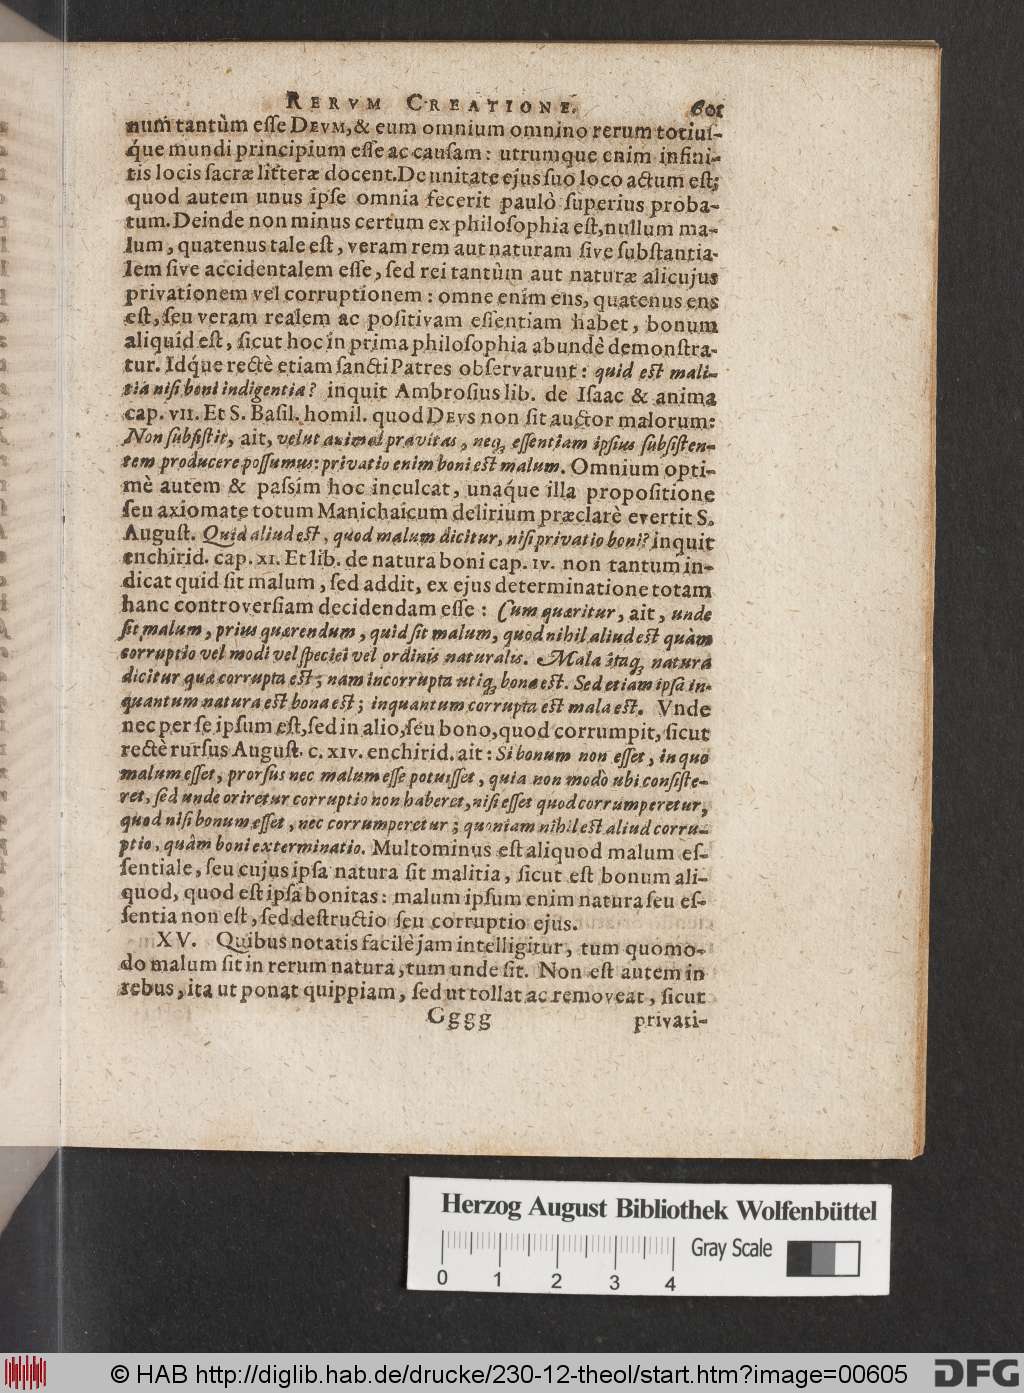 RERVM CREATIONE. 601
num tantùm eſſe DEVM, & eum omnium omnino rerum totiuſ-
q́ue mundi principium eſſe ac cauſam: utrumque enim infini-
tis locis ſacræ litteræ docent. De unitate ejus ſuo loco actum eſt;
quod autem unus ipſe omnia fecerit paulò ſuperius proba-
tum. Deinde non minus certum ex philoſophia eſt, nullum ma-
lum, quatenus tale eſt, veram rem aut naturam ſive ſubſtantia-
lem ſive accidentalem eſſe, ſed rei tantùm aut naturæ alicujus
privationem vel corruptionem: omne enim ens, quatenus ens
eſt, ſeu veram realem ac poſitivam eſſentiam habet, bonum
aliquid eſt, ſicut hoc in prima philoſophia abundè demonſtra-
tur. Idq́ue rectè etiam ſancti Patres obſervarunt: quid eſt mali-
tia niſi boni indigentia? inquit Ambroſius lib. de Iſaac & anima
cap. VII. Et S. Baſil. homil. quod DEVS non ſit auctor malorum:
Non ſubſiſtit, ait, velut animal pravitas, neq; eſſentiam ipſius ſubſiſten-
tem producere poſſumus: privatio enim boni eſt malum. Omnium opti-
mè autem & paſſim hoc inculcat, unaq́ue illa propoſitione
ſeu axiomate totum Manichaicum delirium præclarè evertit S.
Auguſt. Quid aliud eſt, quod malum dicitur, niſi privatio boni? inquit
enchirid. cap. XI. Et lib. de natura boni cap. IV. non tantum in-
dicat quid ſit malum, ſed addit, ex ejus determinatione totam
hanc controverſiam decidendam eſſe: Cum quæritur, ait, unde
ſit malum, prius quærendum, quid ſit malum, quod nihil aliud eſt quàm
corruptio vel modi vel ſpeciei vel ordinis naturalis. Mala itaq; natura
dicitur quæ corrupta eſt; nam incorrupta utiq; bona eſt. Sed etiam ipſa in-
quantum natura eſt bona eſt; inquantum corrupta eſt mala eſt. Vnde
nec per ſe ipſum eſt, ſed in alio, ſeu bono, quod corrumpit, ſicut
rectè rurſus Auguſt. c. XIV. enchirid. ait: Si bonum non eſſet, in quo
malum eſſet, prorſus nec malum eſſe potuiſſet, quia non modò ubi conſiſte-
ret, ſed unde oriretur corruptio non haberet, niſi eſſet quod corrumperetur,
quod niſi bonum eſſet, nec corrumperetur; quoniam nihil eſt aliud corru-
ptio, quàm boni exterminatio. Multominus eſt aliquod malum eſ-
ſentiale, ſeu cujus ipſa natura ſit malitia, ſicut eſt bonum ali-
quod, quod eſt ipſa bonitas: malum ipſum enim natura ſeu eſ-
ſentia non eſt, ſed deſtructio ſeu corruptio ejus.
XV. Quibus notatis facilè jam intelligitur, tum quomo-
do malum ſit in rerum natura, tum unde ſit. Non eſt autem in
rebus, ita ut ponat quippiam, ſed ut tollat ac removeat, ſicut
Gggg privati-
Herzog August Bibliothek Wolfenbüttel
0 1 2 3 4 Gray Scale
© HAB http://diglib.hab.de/drucke/230-12-theol/start.htm?image=00605 DFG